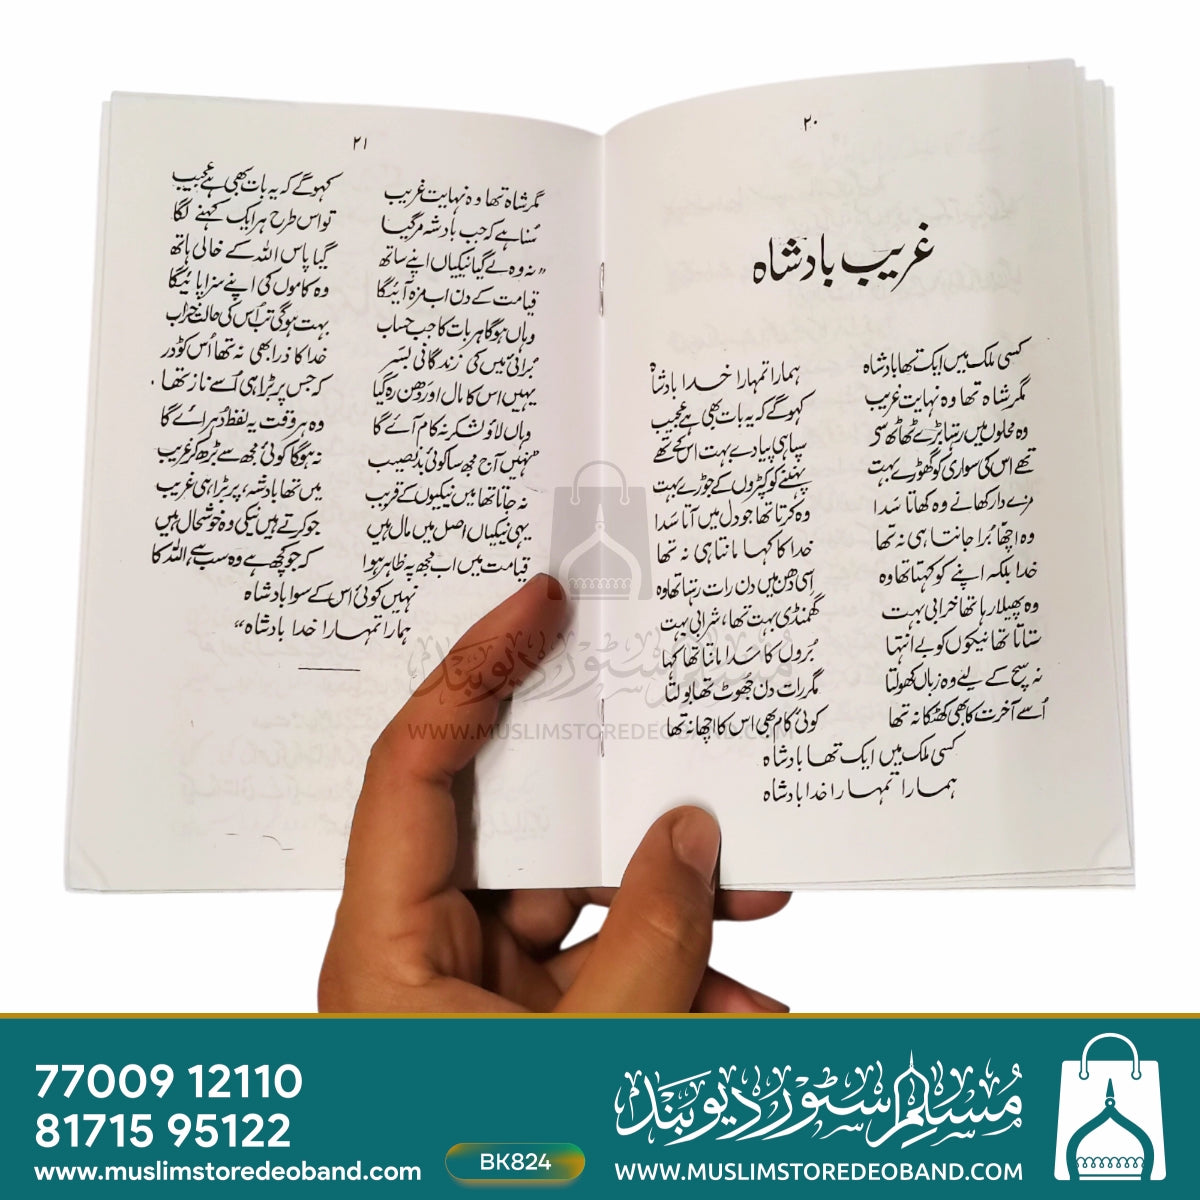 ۲۰
غریب بادشاہ
کسی ملک میں ایک تھا بادشاہ ہمارا تمہارا خدا بادشاہ
مگر شاہ تھا وہ نہایت غریب کہو گے کہ یہ بات بھی ہے عجیب
وہ محلوں میں رہتا بڑے ٹھاٹھ سے سپاہی پیادے بہت اس کے تھے
تھے اس کی سواری کو گھوڑے بہت پہننے کو کپڑوں کے جوڑے بہت
مزے دار کھانے وہ کھاتا سَدا وہ کرتا تھا جو دل میں آتا سَدا
وہ اچھا بُرا جانتا ہی نہ تھا خدا کا کہا مانتا ہی نہ تھا
خدا بلکہ اپنے کو کہتا تھا وہ اِسی دھن میں دن رات رہتا تھا وہ
وہ پھیلا رہا تھا خرابی بہت گھمنڈی بہت تھا، شرابی بہت
ستاتا تھا نیکوں کو بے انتہا بُروں کا سَدا مانتا تھا کہا
نہ سچ کے لیے وہ زباں کھولتا مگر رات دن جھوٹ تھا بولتا
اُسے آخرت کا بھی کھٹکا نہ تھا کوئی کام بھی اس کا اچھا نہ تھا
کسی ملک میں ایک تھا بادشاہ
ہمارا تمہارا خدا بادشاہ
۲۱
مگر شاہ تھا وہ نہایت غریب کہو گے کہ یہ بات بھی ہے عجیب
سُنا ہے کہ جب بادشہ مر گیا تو اس طرح ہر ایک کہنے لگا
"نہ وہ لے گیا نیکیاں اپنے ساتھ گیا پاس اللہ کے خالی ہاتھ
قیامت کے دن اب مزہ آئیگا وہ کاموں کی اپنے سزا پائیگا
وہاں ہوگا ہر بات کا جب حساب بہت ہوگی تب اُس کی حالت خراب
بُرائی میں کی زندگانی بَسَر خدا کا ذرا بھی نہ تھا اُس کو ڈر
یہیں اس کا مال اور دھن رہ گیا کہ جس پر بڑا ہی اُسے ناز تھا
وہاں لاؤ لشکر نہ کام آئے گا وہ ہر وقت یہ لفظ دُہرائے گا
"نہیں آج مجھ سا کوئی بدنصیب نہ ہوگا کوئی مجھ سے بڑھ کر غریب
نہ جاتا تھا میں نیکیوں کے قریب میں تھا بادشہ، پر بڑا ہی غریب
یہی نیکیاں اصل میں مال ہیں جو کرتے ہیں نیکی وہ خوشحال ہیں
قیامت میں اب مجھ پہ ظاہر ہوا کہ جو کچھ ہے وہ سب ہے اللہ کا
نہیں کوئی اس کے سوا بادشاہ
ہمارا تمہارا خدا بادشاہ"
مسلم سٹور دیوبند
WWW.MUSLIMSTOREDEOBAND.COM
77009 12110
81715 95122
www.muslimstoredeoband.com
BK824
مسلم سٹور دیوبند
WWW.MUSLIMSTOREDEOBAND.COM